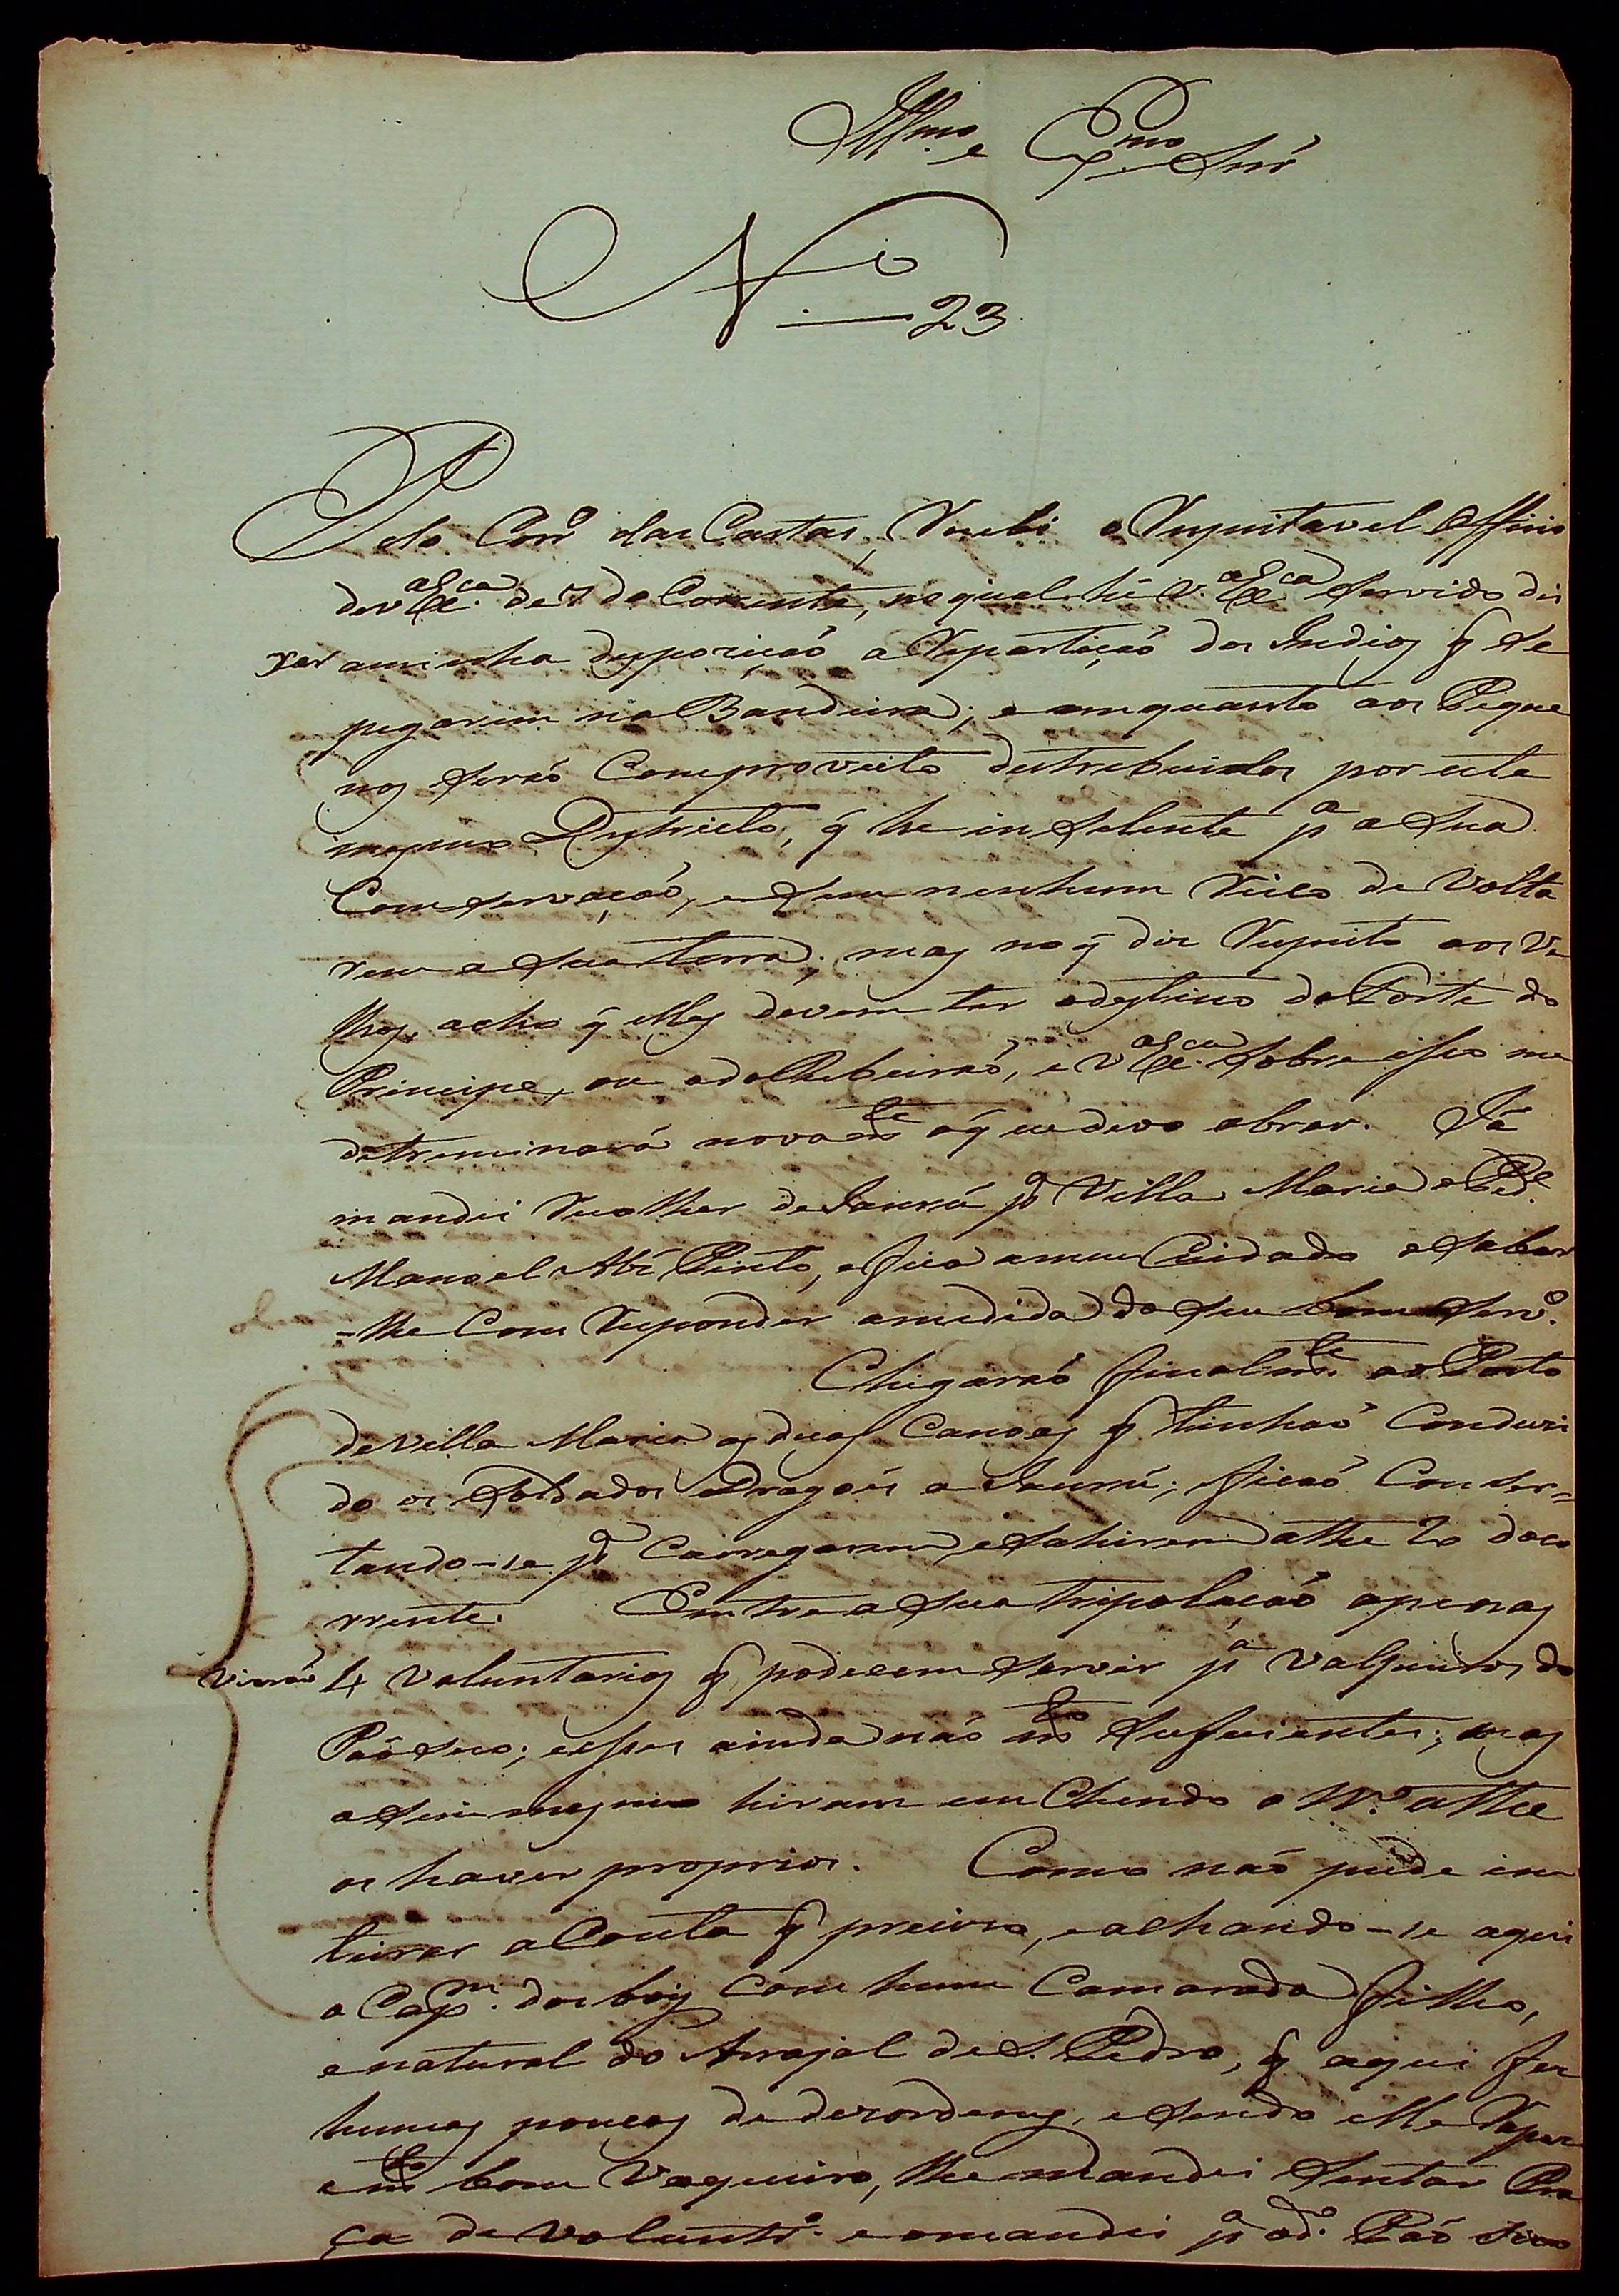 Illmo. e Exmo. Snr
No. 23
Pelo Corro. das Cartas, Recebi o Respeitavel Officio
de V.a Exca. de 7 do Corrente, no qual hé V.a Exca. Servido dei
xar a minha dispozicaõ a Repartiçaõ dos Indios q̃ Se
pegarem na Bandeira; e em quanto aos Peque
nos Seraõ Com proveito destrebuidos por este
mesmo Destricto, q̃ he inSelente pa. a Sua
ConServaçaõ, e Sem nenhum Ricco de Volta
rem a Sua terra; mas no q̃ diz Respeito aos Ve
lhos, acho q̃ elles devem ter o destino do Forte do
Principe, ou o do Ribeiraõ, e V.a Exca. Sobre isso me
detreminará novamte. o q̃ ue devo obrar. Já
mandei Recolher de Jaurú pa. Villa Maria o Pede.
Manoel Alz Pinto, e fica a meu Cuidado o Saber
-lhe Com Responder a medida do Seu bom Servo.
Chigaraõ finalmte. ao Porto
de Villa Maria as duas Canoas q̃ tinhaõ Conduzi
do os Soldados Dragoẽs a Jaurú; ficaõ ConSer=
tando-se pa. Carregarem, e Sahirem athe 20 do co
rrente. Entre a Sua tripolacaõ apenas
vieraõ 4 voluntarios q̃ podecem Servir pa. Vaqueiros do
Páo Seco; e esses ainda naõ mto. Suficientes; mas
aSim mesmo hiram em Chendo o No. athe
os haver proprios. Como naõ pude in
teirar a Conta q̃ preciva, e achando-se aqui
o Capm. dos bois Com hum Camarada filho,
e natural do Arrajal de S. Pedro, q̃ aqui fez
humas poucas de dezordens, e Sendo elle Rapaz
e mto. bom Vaqueiro, lhe mandei Sentar Pra
ça de Voluntro. e o mandei pa. o do. Páo Seco